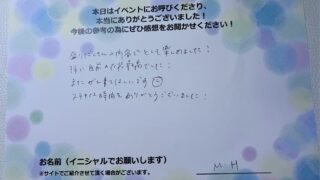 本日はイベントにお呼びくださり、
本当にありがとうございました！
今後の参考の為にぜひ感想をお聞かせください！
盛りだくさんの内容でとても楽しめました！
またぜひ来てほしいです
ステキな時間をありがとうございました！
お名前（イニシャルでお願いします）
M H
※サイトでご紹介させて頂く場合がございます。